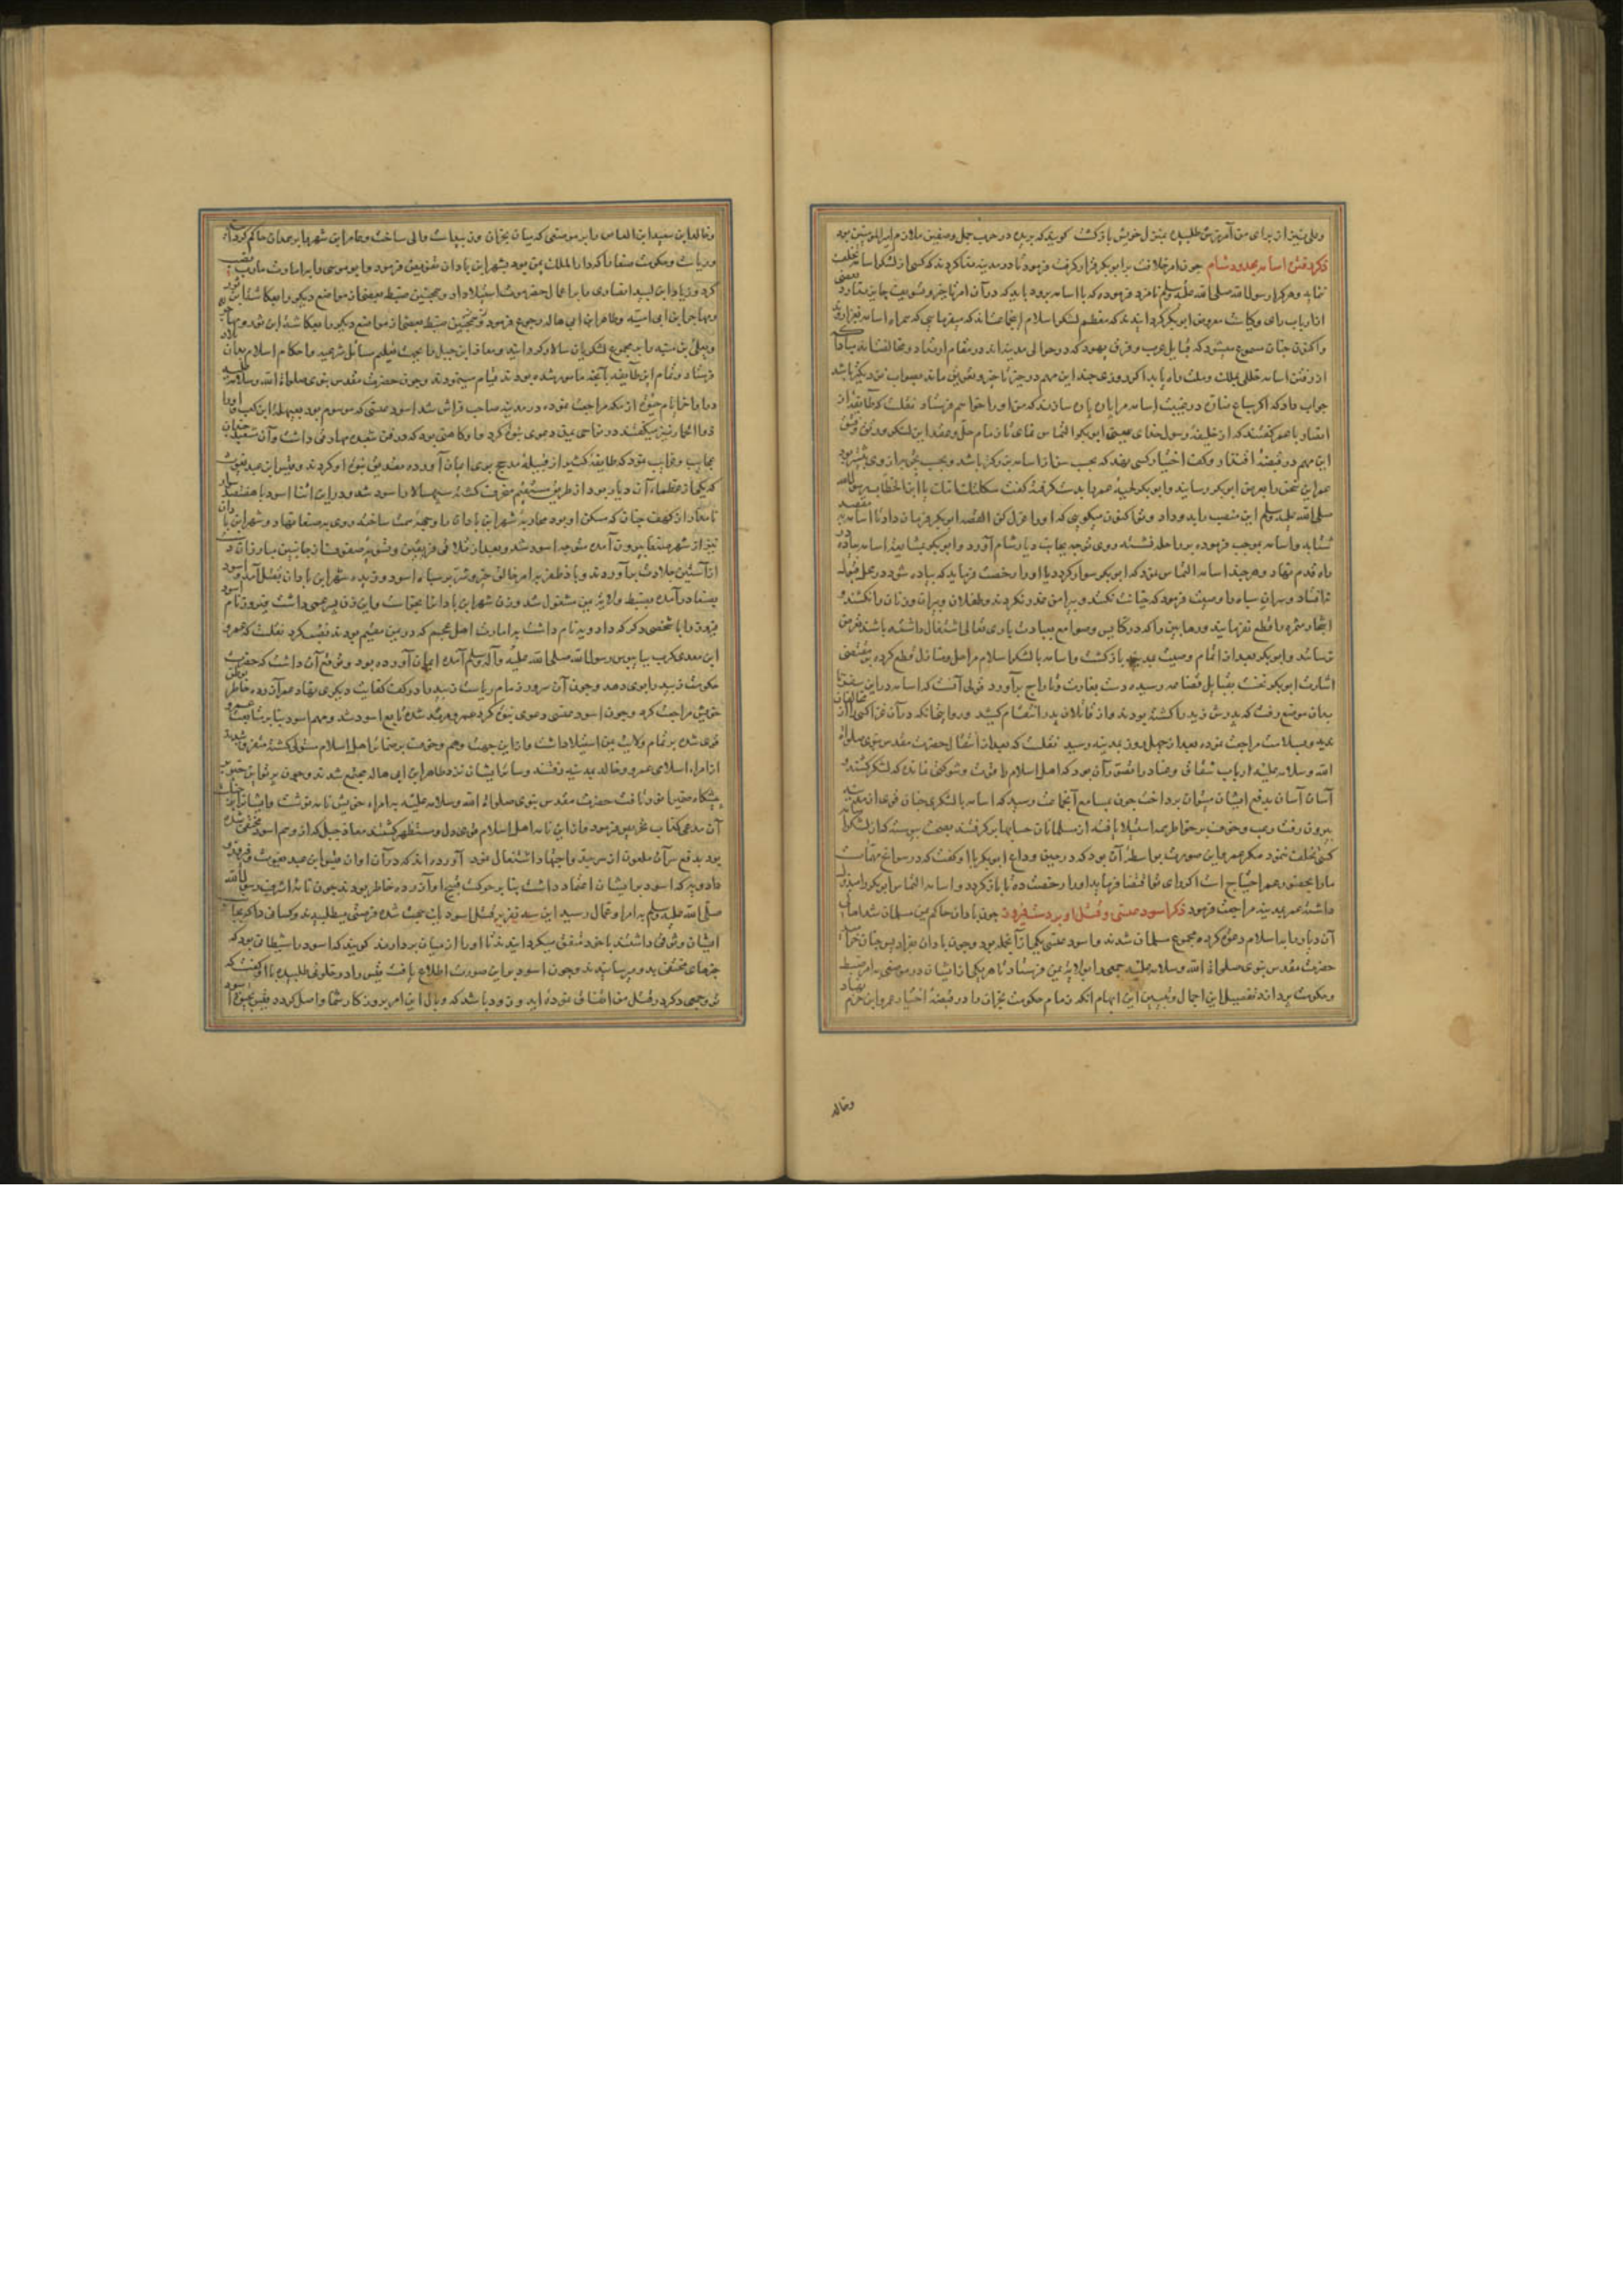 وعلی نیز از برای من آمرزش طلبیده بمنزل خویش بازگشت گویند که بریده در حرب جمل و صفین ملازم امیرالمومنین بود
ذکر رفتن اسامه بحدود شام چون امر خلافت بر ابوبکر قرار گرفت فرمود تا در مدینه ندا کردند که کسی از لشکر اسامه تخلف
ننماید و هر کرا رسول الله صلی الله علیه وسلم نامزد فرموده که با اسامه برود باید که در آن امر تاخیر و تسویف جایز ندارد بعضی
از ارباب رای و کیاست معروض ابوبکر گردانیدند که معظم لشکر اسلام این جماعت‌اند که بسفر
واکنون چنان مسموع میشود که قبایل عرب و فرق یهود که در حوالی مدینه‌اند در مقام ارتداد و مخالفت‌اند مبادا که
از رفتن اسامه خللی بملک و ملت راه یابد اگر روزی چند این مهم در حیز تاخیر و تعویق ماند بصواب نزدیکتر باشد
جواب داد که اگر سباع ضاره در غیبت اسامه مرا پاره پاره سازند که من او را خواهم فرستاد نقلست که طایفه از
انصار با عمر گفتند که از خلیفه رسول خدای یعنی ابوبکر التماس نمای تا زمام حل و عقد این لشکر
این مهم در قبضه اقتدار و کف اختیار کسی نهد که بحسب سن از اسامه بزرگتر باشد و بحسب تجربه از وی بیشتر بود
عمر این سخن را بعرض ابوبکر رسانید و ابوبکر لحیه عمر را بدست گرفته گفت ثکلتک امک یا ابن الخطاب رسول الله
صلی الله علیه وسلم این منصب را بدو داد و تو اکنون میگویی که او را عزل کن القصه ابوبکر فرمان داد تا اسامه بمقصد
شتابد و اسامه بموجب فرموده بر راحله نشسته روی توجه بجانب دیار شام آورد و ابوبکر بمشایعت اسامه پیاده در
راه قدم نهاد و هر چند اسامه التماس نمود که ابوبکر سوار گردد یا او را رخصت فرماید که پیاده شود در محل قبول
نه‌افتاد و سران سپاه را وصیت فرمود که خیانت نکنند و پیرامن غدر نگردند و طفلان و پیران و زنان را نکشند و
اشجار مثمره را قطع نفرمایند و رهابین را که در کنایس و صوامع بعبادت باری تعالی اشتغال داشته باشند تعرض
نرسانند و ابوبکر بعد از اتمام وصیت بمدینه بازگشت و اسامه با لشکر اسلام مراحل و منازل قطع کرده بمقتضی
اشارت ابوبکر نخست بقبایل قضاعه رسیده دست بغارت و تاراج برآورد قولی آنست که اسامه در این سفر تا
بدان موضع رفت که پدرش زید را کشته بودند و از قاتلان پدر انتقام کشید و روا نداشت که در آن غزا کسی را از مخالفان
بعد و بسلامت مراجعت نموده بعد از چهل روز بمدینه رسید نقلست که بعد از انتقال حضرت مقدس نبوی صلوات
الله وسلامه علیه ارباب شقاق و عناد را تصور آن بود که اهل اسلام را قوت و شوکتی نمانده که لشکر کشند و
آسان آسان بدفع ایشان میتوان پرداخت چون بمسامع آن جماعت رسید که اسامه با لشکری چنان قوی از مدینه
بیرون رفت رعب و خوف بر خواطر همه استیلا یافته از مسلمانان حسابها برگرفتند بصحت پیوسته که از لشکر اسامه
کسی تخلف ننمود مگر عمر و این صورت بواسطه آن بود که در حین وداع ابوبکر با او گفت که در سوانح مهمات
ما را بحضور عمر احتیاج است اگر رای تو اقتضا فرماید او را رخصت ده تا بازگردد و اسامه التماس ابوبکر را مبذول
داشته عمر بمدینه مراجعت فرمود ذکر اسود عنسی و قتل او بر دست فیروز چون باذان حاکم یمن مسلمان شد اهالی
آن دیار را به اسلام دعوت کرده مجموع مسلمان شدند و اسود عنسی یکی از آنجمله بود و چون باذان بجزا
حضرت مقدس نبوی صلوات الله وسلامه علیه جمعی را بولایت یمن فرستاد تا هر یکی از ایشان در موضعی به امر ضبط
و حکومت پردازند تفصیل این اجمال و تبیین این ابهام آنکه زمام حکومت نجران را در قبضه اختیار عمرو بن حزم نهاد
وخالد
وخالد ابن سعید ابن العاص را بر موضعی که میان نجران و زبید است والی ساخت و عامر ابن شهر را بر همدان حاکم گردانید
و ریاست و حکومت صنعا را که دارالملک یمن بود بشهر ابن باذان تفویض فرمود و ابو موسی را بر امارت مارب نصب
کرد و زیاد ابن لبید انصاری را بر اعمال حضرموت استیلا داد و همچنین ضبط بعضی از مواضع دیگر را بعکاشه ابن ثور
و مهاجر ابن ابی امیه و طاهر ابن ابی هاله رجوع فرمود
و یعلی بن منیه را بر مجموع لشکریان سالار گردانید و معاذ ابن جبل را بجهت تعلیم مسائل شرعیه و احکام اسلام بدان بلاد
فرستاد و تمام این طایفه بآنچه مامور شده بودند قیام مینمودند و چون حضرت مقدس نبوی صلوات الله وسلامه علیه
در اواخر ایام حیوة از مکه مراجعت نموده در مدینه صاحب فراش شد اسود عنسی که موسوم بود بعیهله ابن کعب و او را
ذو الخمار نیز میگفتند در نواحی یمن دعوی نبوت کرد و او کاهنی بود که در فن شعبده مهارتی داشت و آن شعبده چنان
عجایب و غرایب نمود که طایفه کثیر از قبیله مذحج بوی ایمان آورده تصدیق نبوت او کردند و قیس ابن عبد یغوث
که یکی از عظماء آن دیار بود از طریق مستقیم منحرف گشته سپهسالار اسود شد و در این اثنا اسود با هفتصد سوار
نامدار از کهف چنان که مسکن او بود محاربه شهر ابن باذان را وجهه همت ساخته روی به صنعا نهاد و شهر ابن باذان
نیز از شهر صنعا بیرون آمده متوجه اسود شد و بعد از تلاقی فریقین و تسویه صفوف از جانبین مبارزان دست
از آستین جلادت برآوردند و باد ظفر بر امر خالق خیر و شر بر سپاه اسود وزیده شهر ابن باذان بقتل آمد و اسود
بصنعا درآمده بضبط ولایت یمن مشغول شد و زن شهر ابن باذان را بخواست و این زن پسر عمی داشت فیروز نام اسود
فیروز را با شخصی دیگر که دادویه نام داشت بر امارت اهل عجم که در یمن مقیم بودند نصب کرد نقلست که عمرو
ابن معدی کرب بپابوس رسول الله صلی الله علیه وآله وسلم آمده ایمان آورده بود و توقع آن داشت که حضرت
حکومت زبید را بوی دهد و چون آن سرور زمام ریاست زبید را در کف کفایت دیگری نهاد عمرو آزرده خاطر بوطن
خویش مراجعت کرد و چون اسود عنسی دعوی نبوت کرد عمرو مرتد شده تابع اسود شد و مهم اسود بنابر متابعت عمرو
قوی شده بر تمام ولایت یمن استیلا داشت و از این جهت وهم و خوف بر ضمائر اهل اسلام مستولی گشته متفرق شدند
از امراء اسلامی عمرو و خالد بمدینه رفتند و سائر ایشان نزد طاهر ابن ابی هاله مجتمع شدند و چون پرتو این خبر به
پیشگاه ضمیر انور تافت حضرت مقدس نبوی صلوات الله وسلامه علیه به امراء خویش نامه نوشت و ایشان را بر حرب
آن مدعی کذاب تحریض فرمود و از این نامه اهل اسلام قوی دل و مستظهر گشتند معاذ جبل که از وهم اسود مختفی شده
بود بدفع شر آن ملعون از سر جد و اجتهاد اشتغال نمود آورده‌اند که در آن اوان قیس ابن عبد یغوث و فیروز و
دادویه که اسود بر ایشان اعتماد داشت بنابر حرکت قبیح او آزرده خاطر بودند چون نامه اشرف رسول الله
صلی الله علیه وسلم به امرا و عمال رسید این سه نفر بر قتل اسود یک جهت شده فرصتی میطلبیدند و کسانی را که بجانب
ایشان وثوقی داشتند با خود متفق میگردانیدند تا او را از میان بردارند گویند که اسود را شیطانی بود که
خبرهای مختفی بدو میرسانید و چون اسود بر این صورت اطلاع یافت قیس را در خلوتی طلبیده با او گفت که
تو و جمعی دیگر در قتل من اتفاق نموده‌اید و زود باشد که وبال این امر بروزگار شما واصل گردد